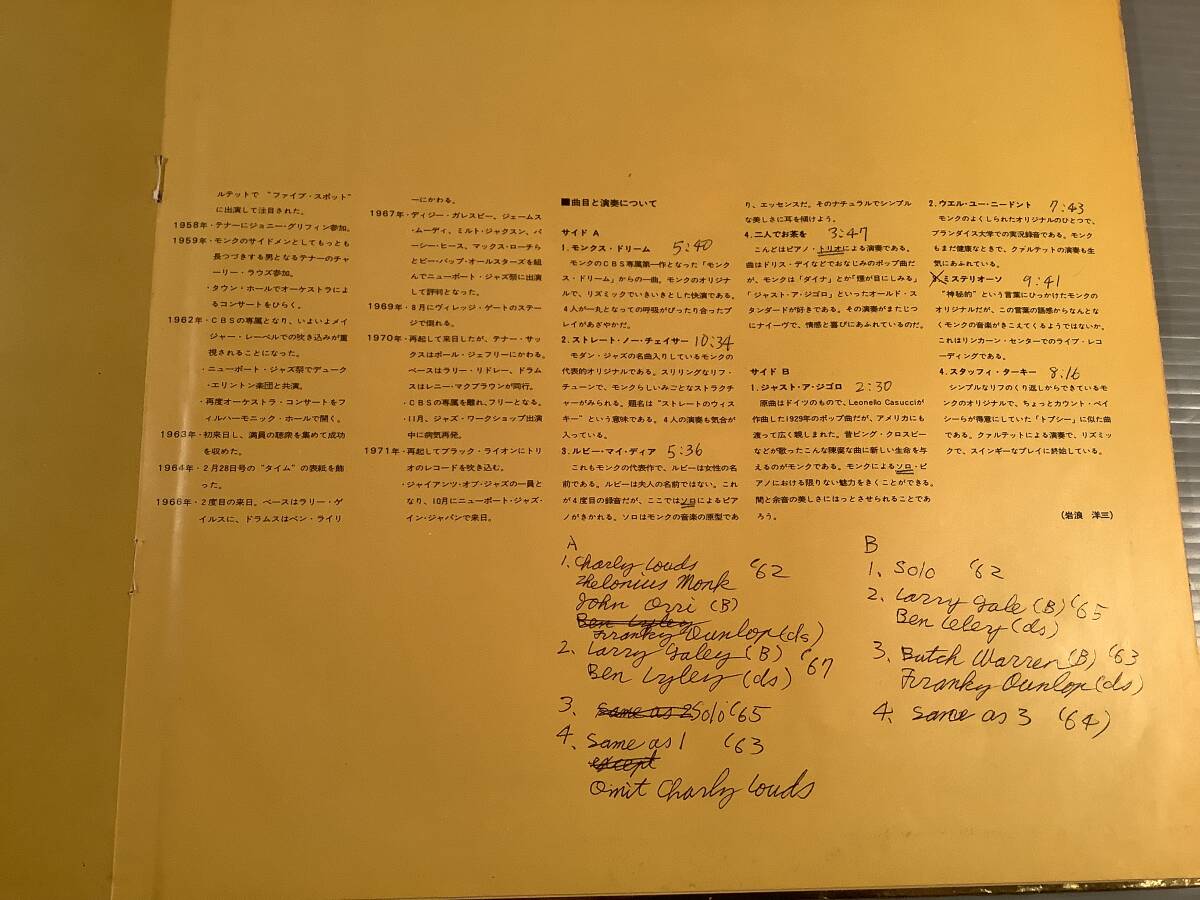 ルテットで “ファイブ・スポット”
に出演して注目された。
1958年・テナーにジョニー・グリフィン参加。
1959年・モンクのサイドメンとしてもっとも
長つづきする男となるテナーのチャ
ーリー・ラウズ参加。
・タウン・ホールでオーケストラによ
るコンサートをひらく。
1962年・CBSの専属となり、いよいよメイ
ジャー・レーベルでの吹き込みが重
視されることになった。
・ニューポート・ジャズ祭でデューク
・エリントン楽団と共演。
・再度オーケストラ・コンサートをフ
ィルハーモニック・ホールで開く。
1963年・初来日し、満員の聴衆を集めて成功
を収めた。
1964年・2月28日号の“タイム”の表紙を飾
った。
1966年・2度目の来日。ベースはラリー・ゲ
イルスに、ドラムスはベン・ライリ
ーにかわる。
1967年・ディジー・ガレスピー、ジェームス
・ムーディ、ミルト・ジャクスン、パ
ーシー・ヒース、マックス・ローチら
とビー・バップ・オールスターズを組
んでニューポート・ジャズ祭に出演
して評判となった。
1969年・8月にヴィレッジ・ゲートのステー
ジで倒れる。
1970年・再起して来日したが、テナー・サッ
クスはポール・ジェフリーにかわる。
ベースはラリー・リドレー、ドラム
スはレニー・マクブラウンが同行。
・CBSの専属を離れ、フリーとなる。
・11月、ジャズ・ワークショップ出演
中に病気再発。
1971年・再起してブラック・ライオンにトリ
オのレコードを吹き込む。
・ジャイアンツ・オブ・ジャズの一員と
なり、10月にニューポート・ジャズ・
イン・ジャパンで来日。
■曲目と演奏について
サイド A
1.モンクス・ドリーム 5:40
モンクのCBS専属第一作となった「モンク
ス・ドリーム」からの一曲。モンクのオリジナ
ルで、リズミックでいきいきとした快演である。
4人が一丸となっての呼吸がぴったり合ったプ
レイがあざやかだ。
2.ストレート・ノー・チェイサー 10:34
モダン・ジャズの名曲入りしているモンクの
代表的オリジナルである。スリリングなリフ・
チューンで、モンクらしいみごとなストラクチ
ャーがみられる。題名は“ストレートのウィス
キー”という意味である。4人の演奏も気合が
入っている。
3.ルビー・マイ・ディア 5:36
これもモンクの代表作で、ルビーは女性の名
前である。ルビーは夫人の名前ではない。これ
が4度目の録音だが、ここではソロによるピア
ノがきかれる。ソロはモンクの音楽の原型であ
り、エッセンスだ。そのナチュラルでシンプル
な美しさに耳を傾けよう。
4.二人でお茶を 3:47
こんどはピアノ・トリオによる演奏である。
曲はドリス・デイなどでおなじみのポップ曲だ
が、モンクは「ダイナ」とか「煙が目にしみる」
「ジャスト・ア・ジゴロ」といったオールド・ス
タンダードが好きである。その演奏がまたじつ
にナイーヴで、情感と喜びにあふれているのだ。
サイド B
1.ジャスト・ア・ジゴロ 2:30
原曲はドイツのもので、Leonello Casucciが
作曲した1929年のポップ曲だが、アメリカにも
渡って広く親しまれた。昔ビング・クロスビー
などが歌ったこんな陳腐な曲に新しい生命を与
えるのがモンクである。モンクによるソロ・ピ
アノにおける限りない魅力をきくことができる。
間と余音の美しさにはっとさせられることであ
ろう。
2.ウエル・ユー・ニードント 7:43
モンクのよくしられたオリジナルのひとつで、
ブランダイス大学での実況録音である。モンク
もまだ健康なときで、クァルテットの演奏も生
気にあふれている。
3.ミステリオーソ 9:41
“神秘的”という言葉にひっかけたモンクの
オリジナルだが、この言葉の語感からなんとな
くモンクの音楽がきこえてくるようではないか。
これはリンカーン・センターでのライブ・レコ
ーディングである。
4.スタッフィ・ターキー 8:16
シンプルなリフのくり返しからできているモ
ンクのオリジナルで、ちょっとカウント・ベイ
シーらが得意にしていた「トプシー」に似た曲
である。クァルテットによる演奏で、リズミッ
クで、スインギーなプレイに終始している。
(岩浪 洋三)
A
1. Charly Louds '62
Thelonius Monk
John Orri (B)
Ben Lyley
Franky Dunlop (ds)
2. Larry Galey (B) '67
Ben Lyley (ds)
3. same as 2 Solo '65
4. Same as 1 '63
except
Omit Charly Louds
B
1. Solo '62
2. Larry Gale (B) '65
Ben Leley (ds)
3. Butch Warren (B) '63
Franky Dunlop (ds)
4. same as 3 '64)